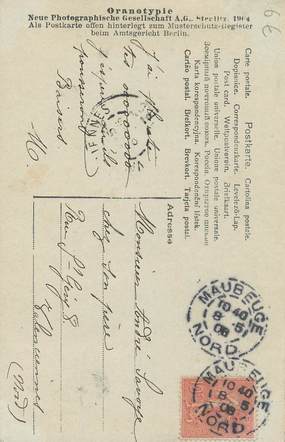 Oranotypie
Neue Photographische Gesellschaft A.G., Steglitz 1904
Als Postkarte offen hinterlegt zum Musterschutz-Register
beim Amtsgericht Berlin.
6 €
Carte postale. Postkarte. Cartolina postale.
Dopisnice. Correspondenzkarte. Levelező-Lap.
Post card. Weltpostverein. Briefkaart.
Union postale universelle. Unione postale universale.
Всемірный почтовый союзъ. Россія. Открытое письмо
Karta korrespondencyjna. Korespondenční lístek.
Cartão postal. Brefkort. Brevkort. Tarjeta postal.
à
Baisers
M
Adresse
Monsieur André
chez son père
Rue St
Valenciennes
(Nord)
MAUBEUGE
10 40
8 - 5
08
NORD
MAUBEUGE
10 40
8 - 5
08
NORD